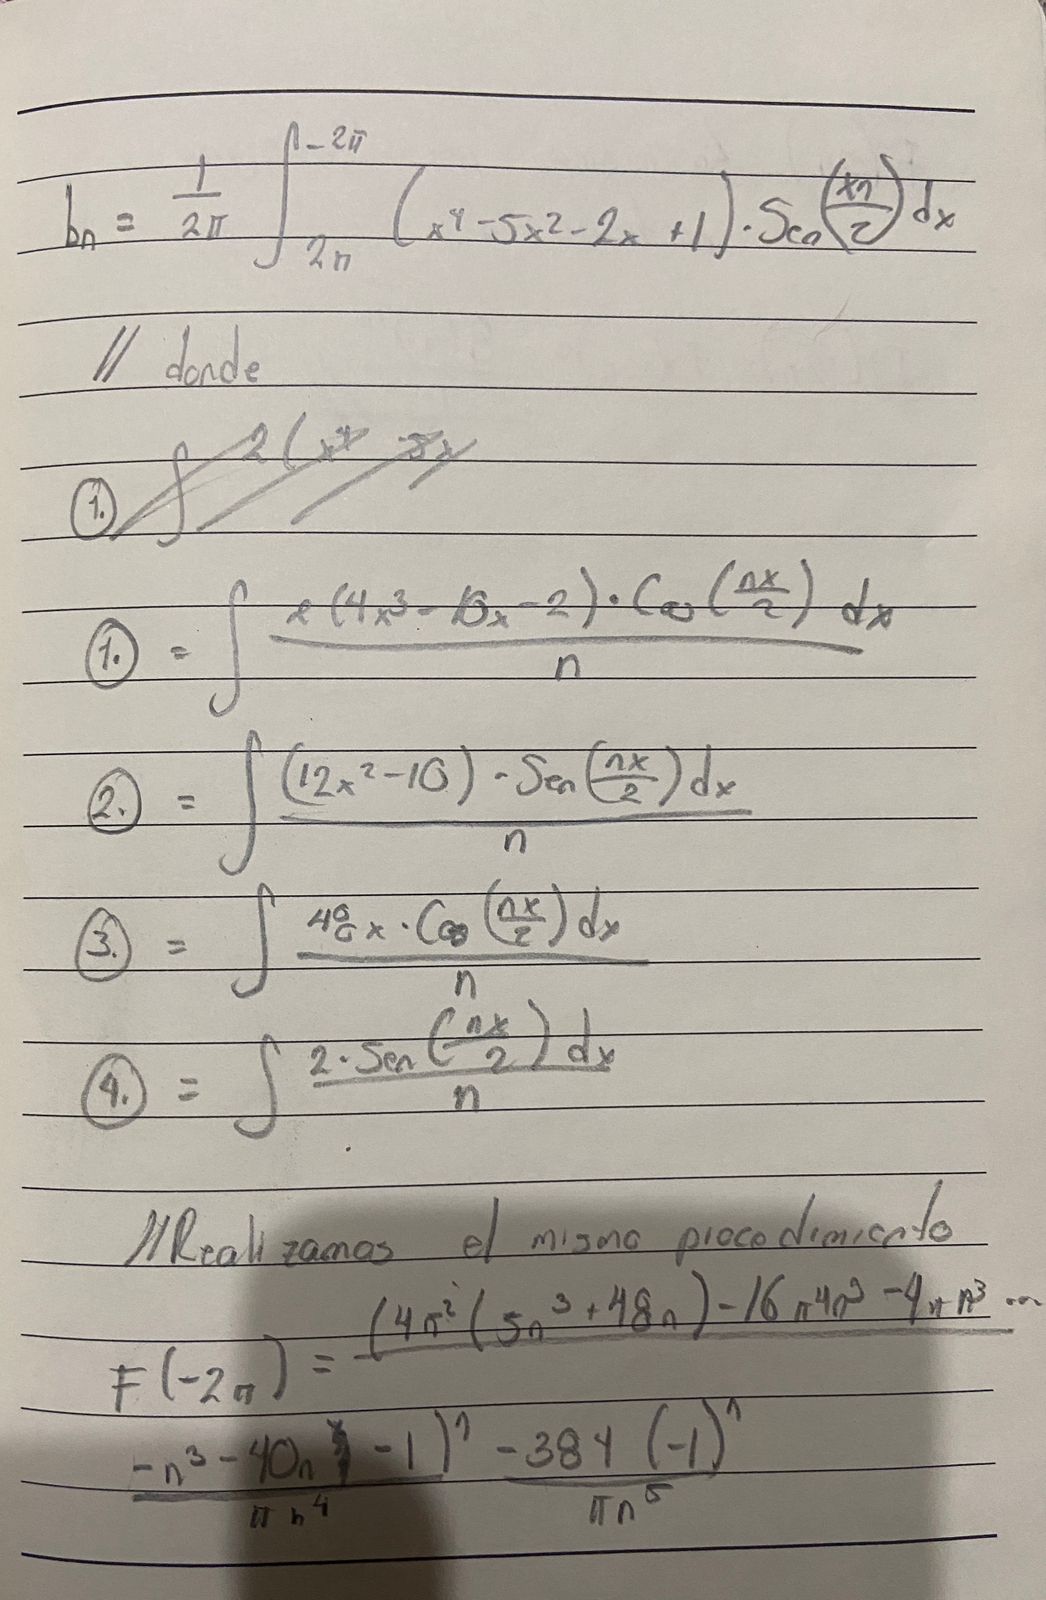 bn = 1/2π ∫_{2π}^{-2π} (x⁴ - 5x² - 2x + 1) · Sen (xn/2) dx
// donde
① = ∫ 2(4x³ - 10x - 2) · Cos (nx/2) dx / n
② = ∫ (12x² - 10) · Sen (nx/2) dx / n
③ = ∫ 48x · Cos (nx/2) dx / n
④ = ∫ 2 · Sen (nx/2) dx / n
// Realizamos el mismo procedimiento
F(-2π) = (4π² (5n³ + 48n) - 16π⁴n³ - 4π n³ ...
- n³ - 40n) (-1)ⁿ / πn⁴ - 384 (-1)ⁿ / πn⁵